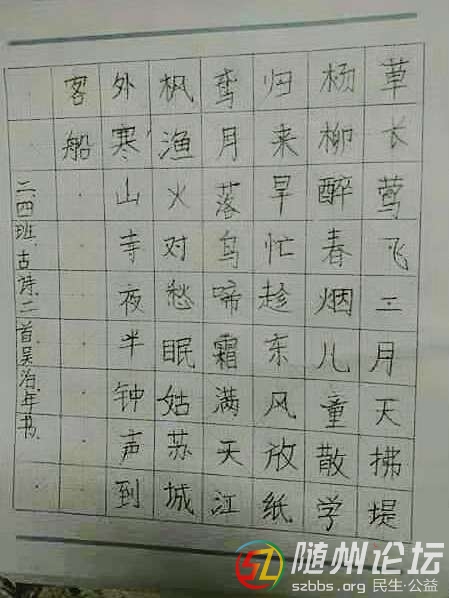 草长莺飞二月天拂堤
杨柳醉春烟儿童散学
归来早忙趁东风放纸
鸾月落鸟啼霜满天江
枫渔火对愁眠姑苏城
外寒山寺夜半钟声到
客船
二.四班.古诗二首吴泊年书.
随州论坛
szbbs.org 民生·公益